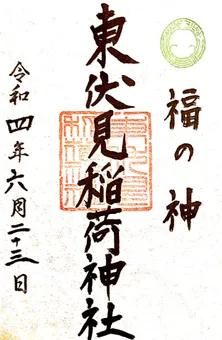 福の神
東伏見稲荷神社
令和四年六月二十三日